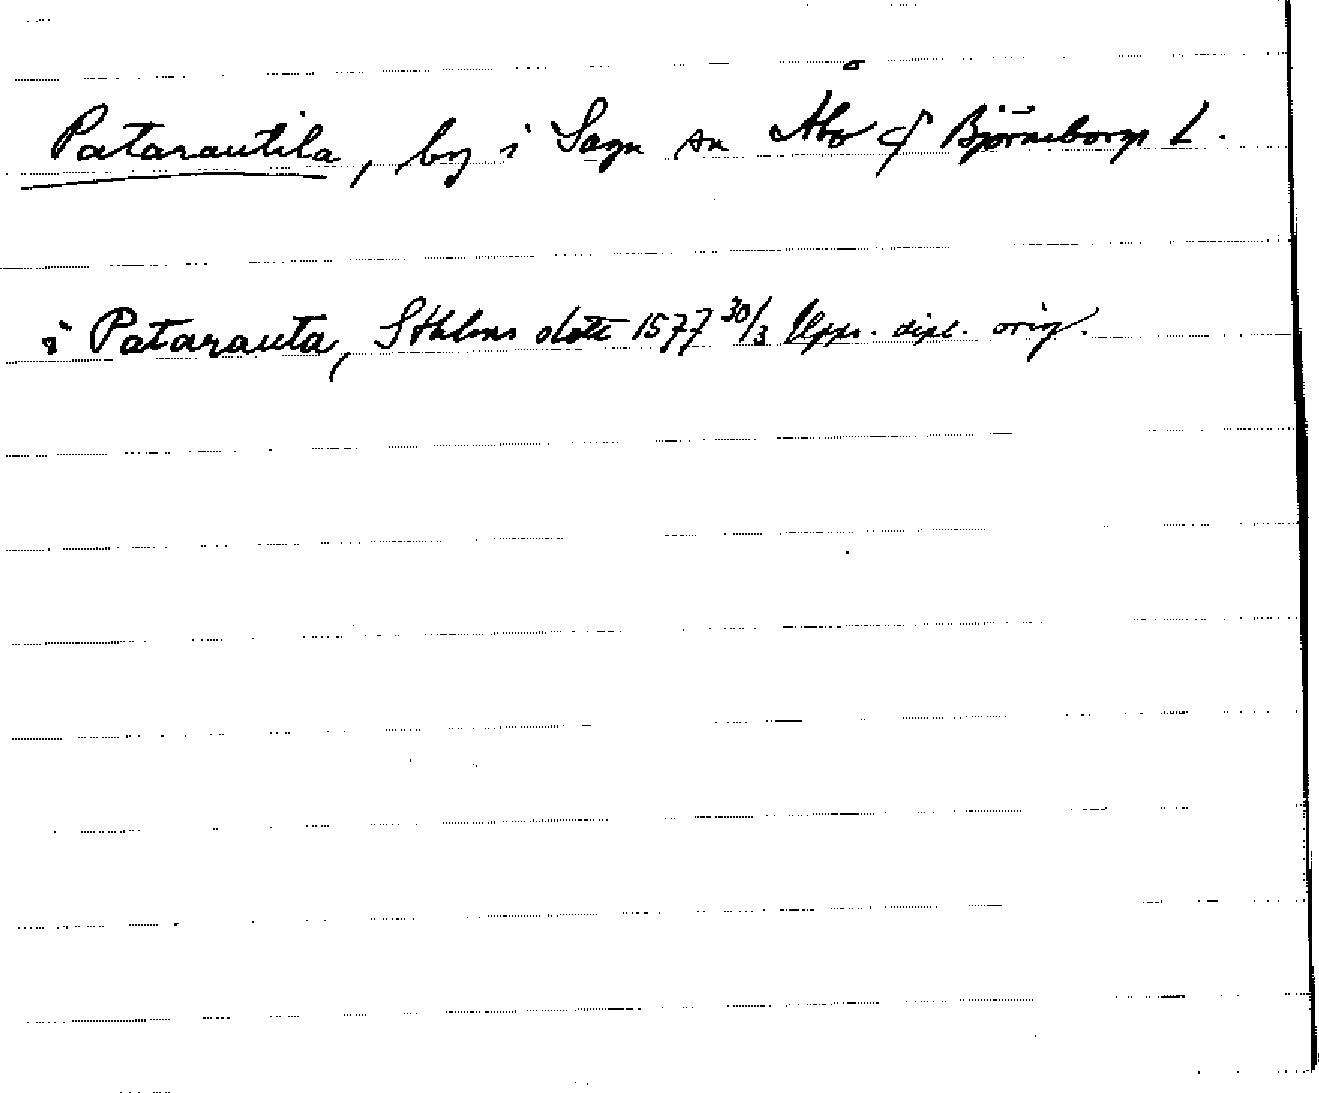 Patarautila, by i Sagu sn Åbo & Björneborgs L.
i Patarauta, Sthlms slott 1577 30/3 Upps. dipl. orig.